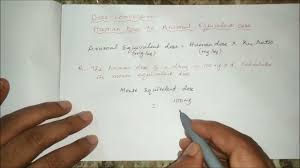 Dose Conversion
Human Dose to Animal Equivalent dose
Animal Equivalent dose = Human dose × Km ratio
(mg/kg) (mg/kg)
Q. The human dose of a drug is 100 mg. Calculate
the mouse equivalent dose
Mouse Equivalent dose
= 100mg